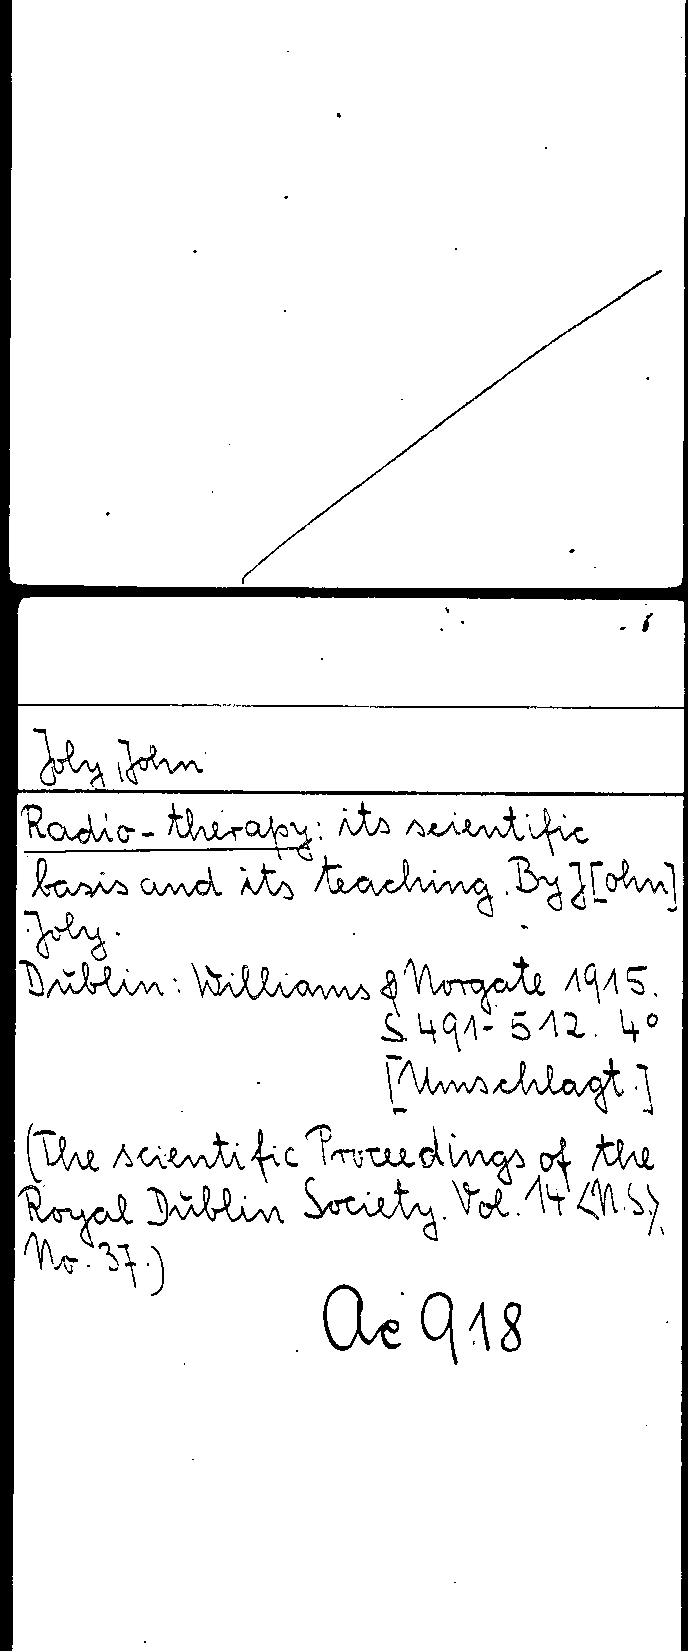 Joly, John
Radio-therapy: its scientific
basis and its teaching. By J[ohn]
Joly.
Dublin: Williams & Norgate 1915.
S. 491-512. 4°
[Umschlagt.]
(The scientific Proceedings of the
Royal Dublin Society. Vol. 14 <N.S.>,
No. 37.)
Ac 918